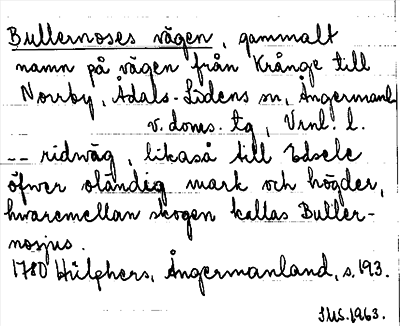 Bullernoses vägen, gammalt
namn på vägen från Krånge till
Norrby, Ådals-Lidens sn, Ångermanl.
v. doms. tg, Vrnl. l.
-- ridwäg, likaså till Edsele
öfwer oländig mark och högder,
hwaremellan skogen kallas Buller-
nosjus.
1780 Hülphers, Ångermanland, s. 193.
IMS. 1963.